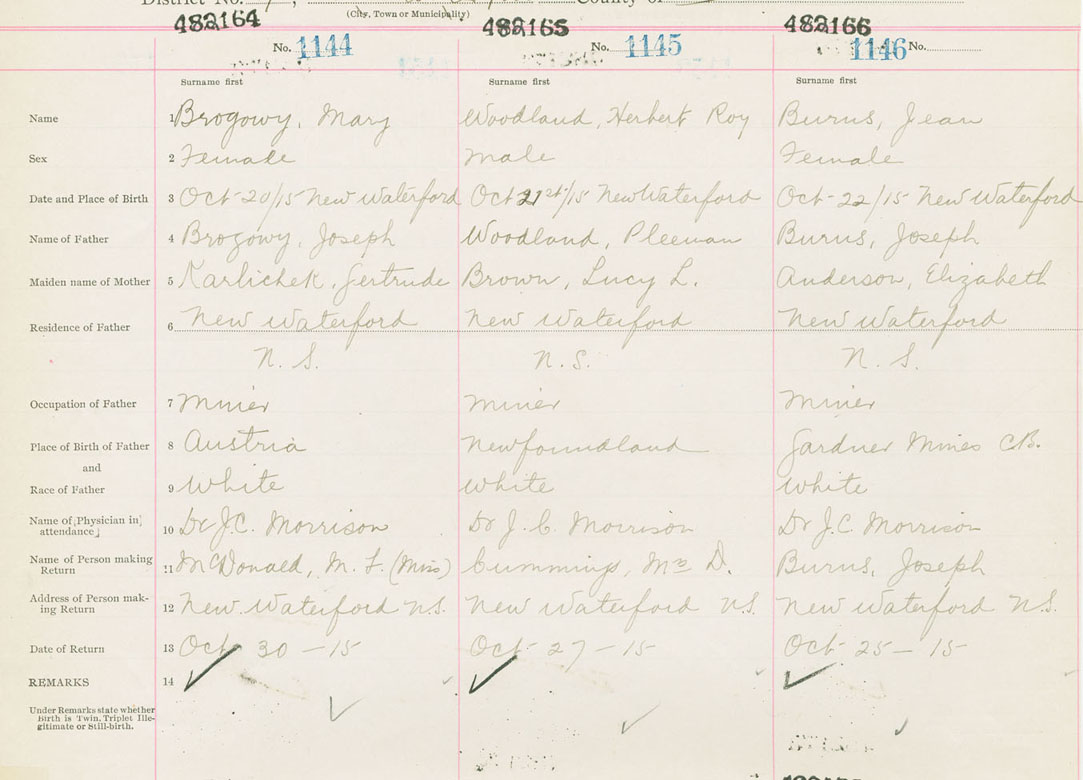 District No. County of
(City, Town or Municipality)
482164 482165 482166
No. 1144 No. 1145 1146 No.
Surname first Surname first Surname first
Name 1 Brogowy, Mary Woodland, Herbert Roy Burns, Jean
Sex 2 Female Male Female
Date and Place of Birth 3 Oct-20/15 New Waterford Oct 21st/15 New Waterford Oct-22/15 New Waterford
Name of Father 4 Brogowy, Joseph Woodland, Pleeman Burns, Joseph
Maiden name of Mother 5 Karlichek, Gertrude Brown, Lucy L. Anderson, Elizabeth
Residence of Father 6 New Waterford New Waterford New Waterford
N. S. N. S. N. S.
Occupation of Father 7 Miner Miner Miner
Place of Birth of Father 8 Austria Newfoundland Gardner Mines C.B.
and
Race of Father 9 White White White
Name of [Physician in 10 Dr J.C. Morrison Dr J. C. Morrison Dr J.C. Morrison
attendance]
Name of Person making 11 McDonald, M. F. (Miss) Cummings, Mrs D. Burns, Joseph
Return
Address of Person mak- 12 New Waterford N.S. New Waterford N.S. New Waterford N.S.
ing Return
Date of Return 13 Oct 30-15 Oct-27-15 Oct-25-15
REMARKS 14
Under Remarks state whether
Birth is Twin, Triplet Ille-
gitimate or Still-birth.